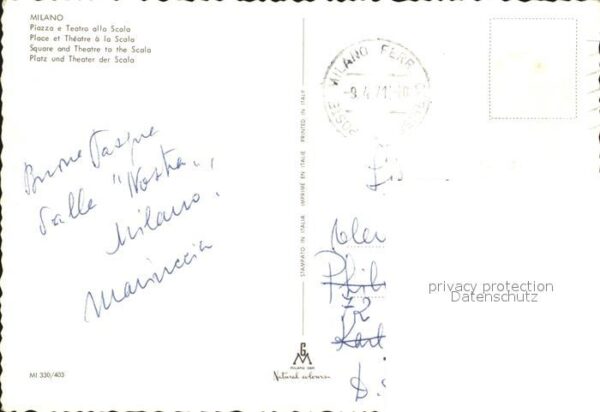 MILANO
Piazza e Teatro alla Scala
Place et Théatre à la Scala
Square and Theatre to the Scala
Platz und Theater der Scala
MILANO FERR
POSTE
Buone Pasque
dalla "Nostra"
Milano!
Mariuccia
STAMPATO IN ITALIA IMPRIMÉ EN ITALIE PRINTED IN ITALY
Phil
72
Karl
D.
privacy protection
Datenschutz
GM
Natural colours
MI 330/403